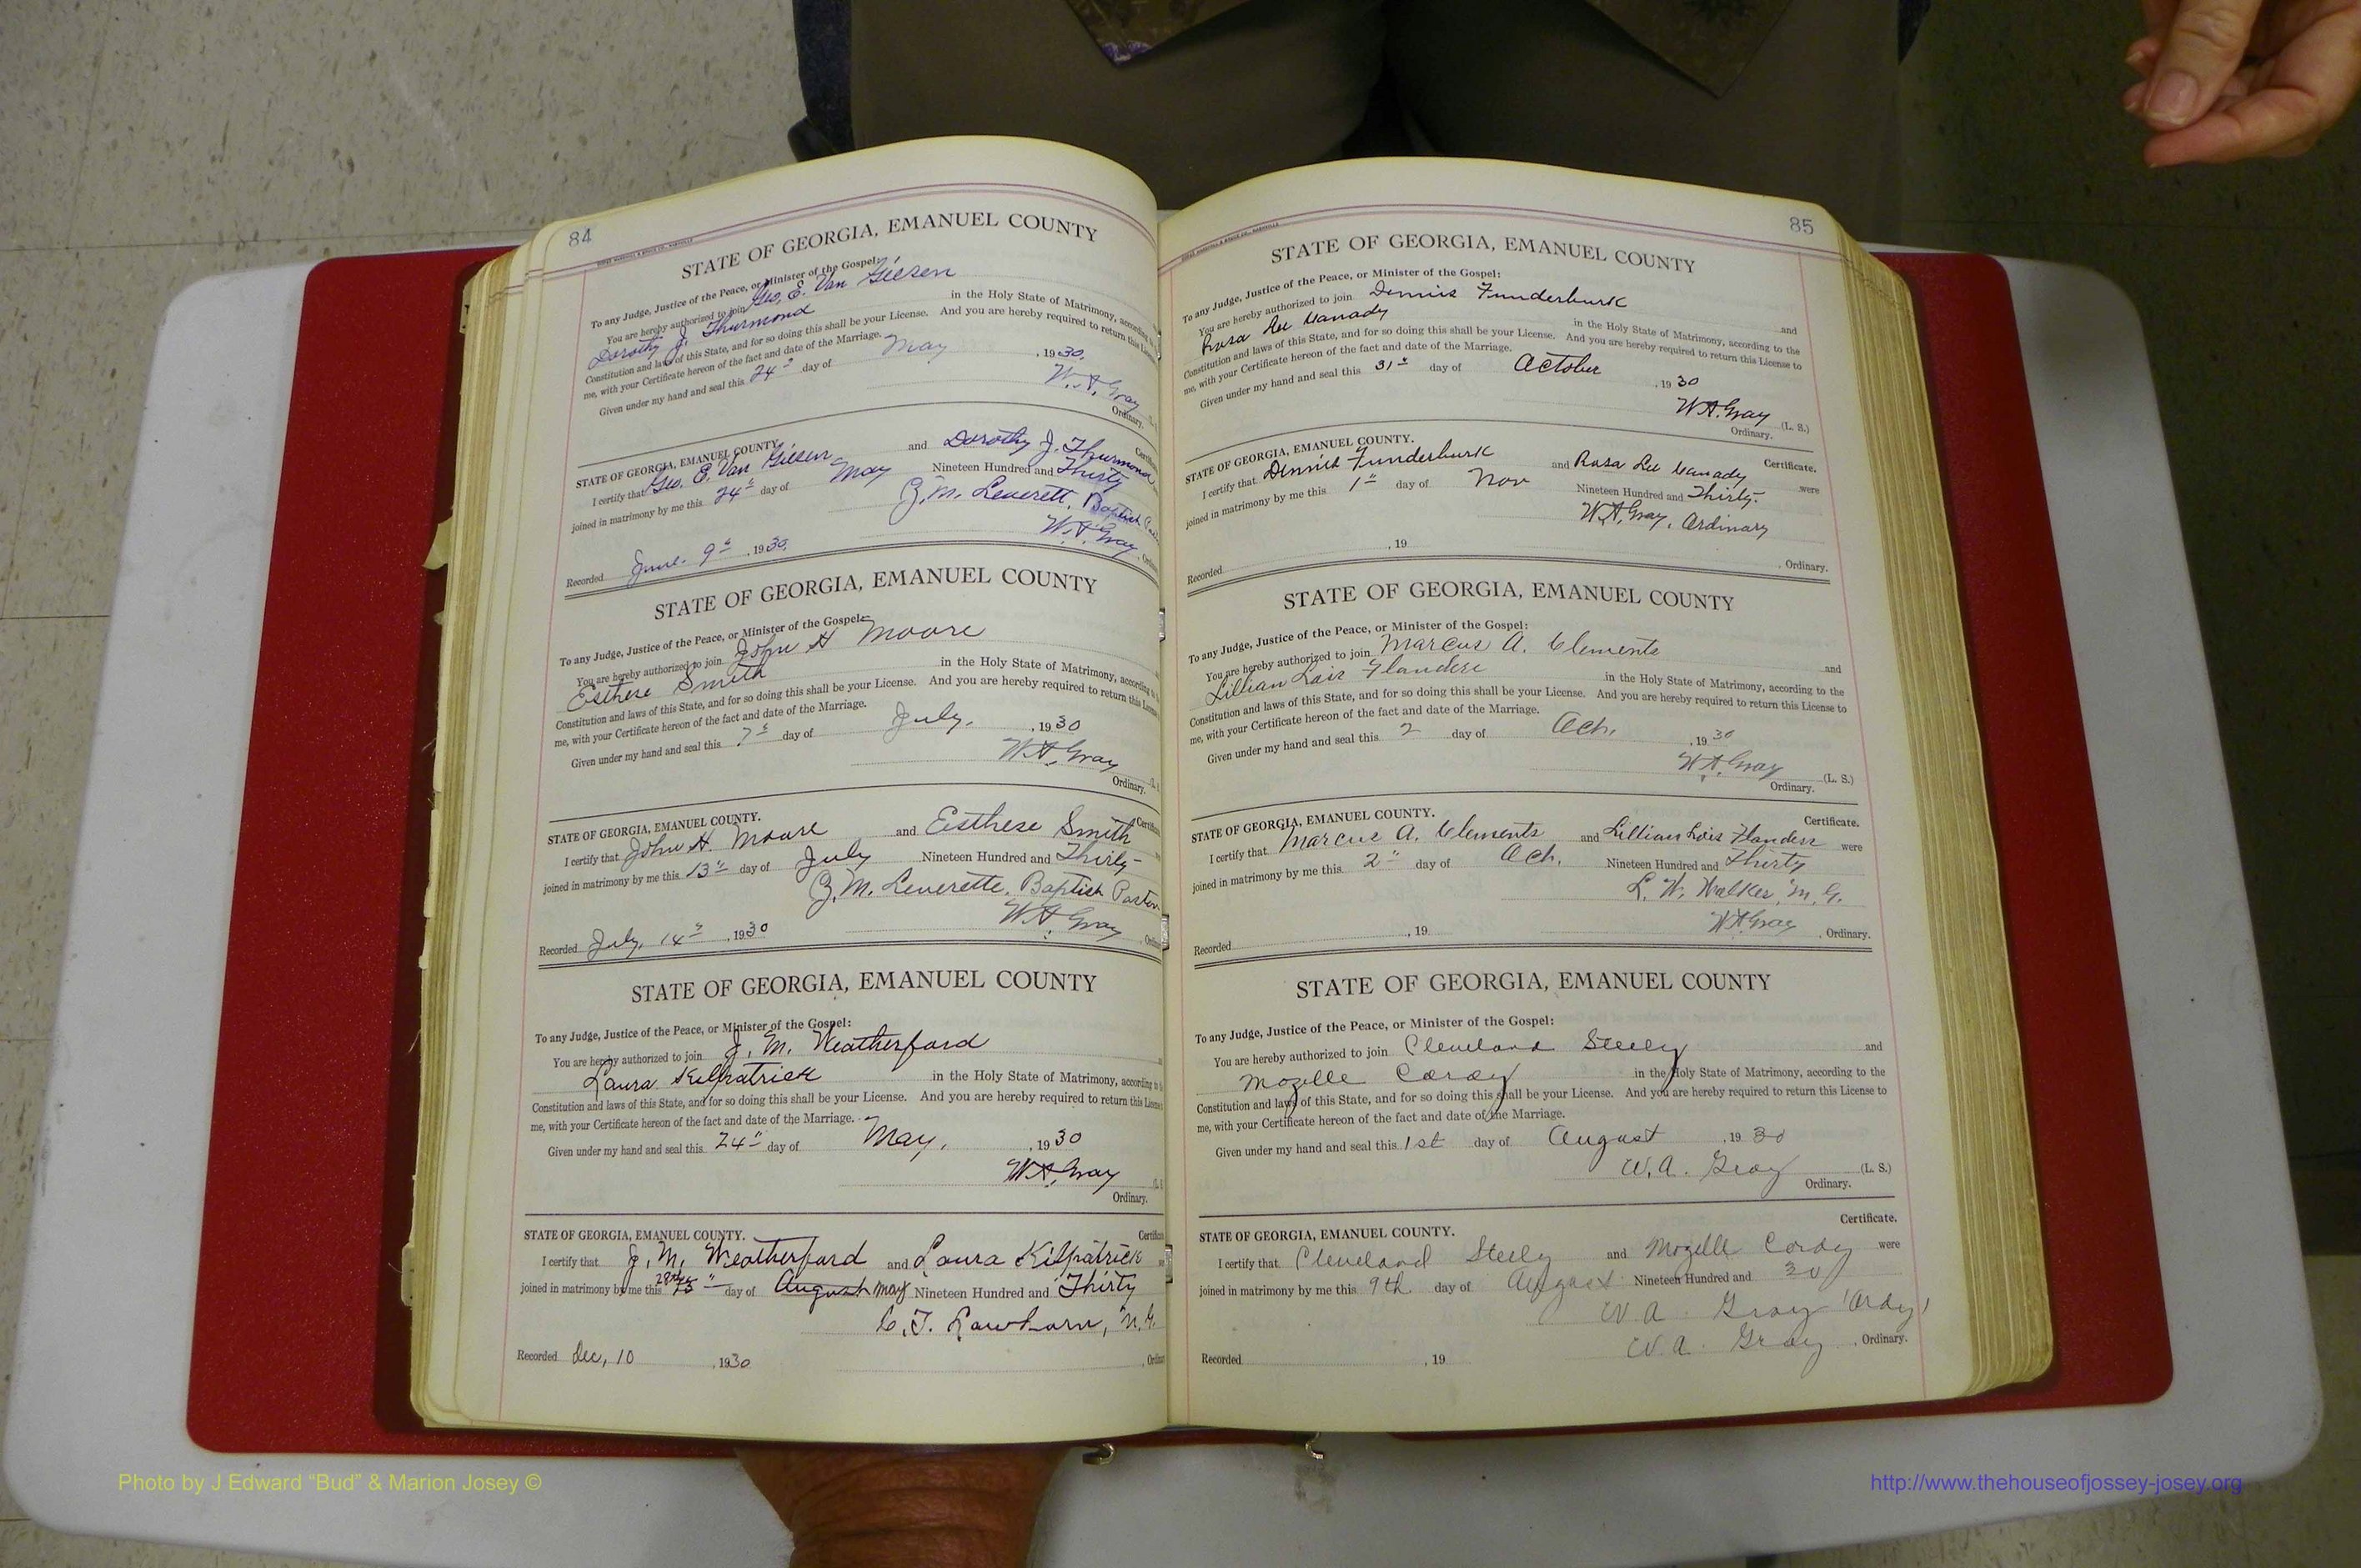 84
STATE OF GEORGIA, EMANUEL COUNTY
To any Judge, Justice of the Peace, or Minister of the Gospel:
You are hereby authorized to join Geo, E. Van Giesen
Dorothy J. Thurmond in the Holy State of Matrimony, according
Constitution and laws of this State, and for so doing this shall be your License. And you are hereby required to return this License
me, with your Certificate hereon of the fact and date of the Marriage.
Given under my hand and seal this 24" day of May , 1930.
W. A. Gray
Ordinary.
STATE OF GEORGIA, EMANUEL COUNTY.
I certify that Geo. E. Van Giesen and Dorothy J. Thurmond
joined in matrimony by me this 24" day of May Nineteen Hundred and Thirty
J. M. Leverett, Baptist
W. A. Gray
Recorded June. 9" , 1930.
STATE OF GEORGIA, EMANUEL COUNTY
To any Judge, Justice of the Peace, or Minister of the Gospel:
You are hereby authorized to join John H Moore
Esthese Smith in the Holy State of Matrimony, according
Constitution and laws of this State, and for so doing this shall be your License. And you are hereby required to return this License
me, with your Certificate hereon of the fact and date of the Marriage.
Given under my hand and seal this 7" day of July. , 1930
W. A. Gray
Ordinary.
STATE OF GEORGIA, EMANUEL COUNTY.
I certify that John H. Moore and Eisthese Smith
joined in matrimony by me this 13" day of July Nineteen Hundred and Thirty-
J. M. Leverette, Baptist Pastor
W. A. Gray
Recorded July, 14" , 1930
STATE OF GEORGIA, EMANUEL COUNTY
To any Judge, Justice of the Peace, or Minister of the Gospel:
You are hereby authorized to join J. M. Weatherford
Laura Kilpatrick in the Holy State of Matrimony, according to
Constitution and laws of this State, and for so doing this shall be your License. And you are hereby required to return this License
me, with your Certificate hereon of the fact and date of the Marriage.
Given under my hand and seal this 24" day of May, , 1930
W. A. Gray
Ordinary.
STATE OF GEORGIA, EMANUEL COUNTY.
I certify that J. M. Weatherford and Laura Kilpatrick
joined in matrimony by me this 28th day of August May Nineteen Hundred and Thirty
C. T. Lawhorn, M. G.
Recorded Dec, 10 , 1930
85
STATE OF GEORGIA, EMANUEL COUNTY
To any Judge, Justice of the Peace, or Minister of the Gospel:
You are hereby authorized to join Dennis Funderburk and
Rosa Lee Canady in the Holy State of Matrimony, according to the
Constitution and laws of this State, and for so doing this shall be your License. And you are hereby required to return this License to
me, with your Certificate hereon of the fact and date of the Marriage.
Given under my hand and seal this 31" day of October , 1930
W. A. Gray (L. S.)
Ordinary.
STATE OF GEORGIA, EMANUEL COUNTY. Certificate.
I certify that Dennis Funderburk and Rosa Lee Canady were
joined in matrimony by me this 1" day of Nov Nineteen Hundred and Thirty.
W. A. Gray, Ordinary
Recorded , 19 , Ordinary.
STATE OF GEORGIA, EMANUEL COUNTY
To any Judge, Justice of the Peace, or Minister of the Gospel:
You are hereby authorized to join Marcus A. Clements and
Lillian Lois Flanders in the Holy State of Matrimony, according to the
Constitution and laws of this State, and for so doing this shall be your License. And you are hereby required to return this License to
me, with your Certificate hereon of the fact and date of the Marriage.
Given under my hand and seal this 2 day of Och. , 1930
W. A. Gray (L. S.)
Ordinary.
STATE OF GEORGIA, EMANUEL COUNTY. Certificate.
I certify that Marcus A. Clements and Lillian Lois Flanders were
joined in matrimony by me this 2" day of Och. Nineteen Hundred and Thirty
L. W. Walker, M. G.
W A Gray
Recorded , 19 , Ordinary.
STATE OF GEORGIA, EMANUEL COUNTY
To any Judge, Justice of the Peace, or Minister of the Gospel:
You are hereby authorized to join Cleveland Steely and
Mozelle Cordy in the Holy State of Matrimony, according to the
Constitution and laws of this State, and for so doing this shall be your License. And you are hereby required to return this License to
me, with your Certificate hereon of the fact and date of the Marriage.
Given under my hand and seal this 1st day of August , 1930
W. A. Gray (L. S.)
Ordinary.
STATE OF GEORGIA, EMANUEL COUNTY. Certificate.
I certify that Cleveland Steely and Mozelle Cordy were
joined in matrimony by me this 9th. day of August Nineteen Hundred and 30
W. A. Gray 'Ordy'
W. A. Gray , Ordinary.
Recorded , 19
Photo by J Edward “Bud” & Marion Josey ©
http://www.thehouseofjossey-josey.org